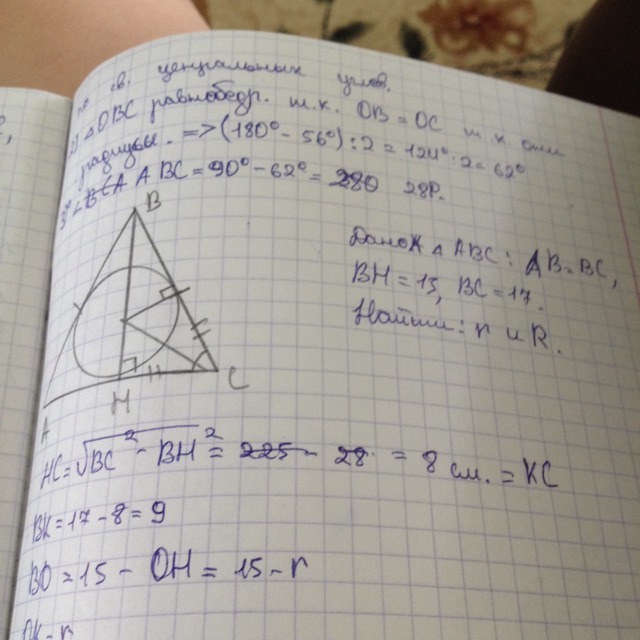 св. центральных углов.
△OBC равнобедр. т.к. OB = OC т.к. они
радиусы. => (180° - 56°) : 2 = 124° : 2 = 62°
ABC = 90° - 62° = 280 28°.
B
Дано: △ ABC : AB = BC,
BH = 15, BC = 17.
Найти: r и R.
C
H
A
HC = √BC² - BH² = 225 - 28 = 8 см. = KC
BK = 17 - 8 = 9
BO = 15 - OH = 15 - r
OK - r